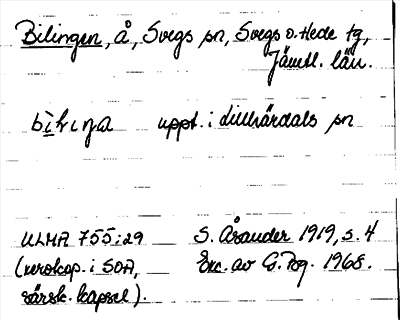 Bilingen, å, Svegs sn, Svegs o. Hede tg,
Jämtl. län.
uppt. i Lillhärdals sn
ULMA 755:29
S. Åsander 1919, s. 4
(xerokop. i SOA,
Exc. av G. Rog. 1968.
särsk. kapsel).